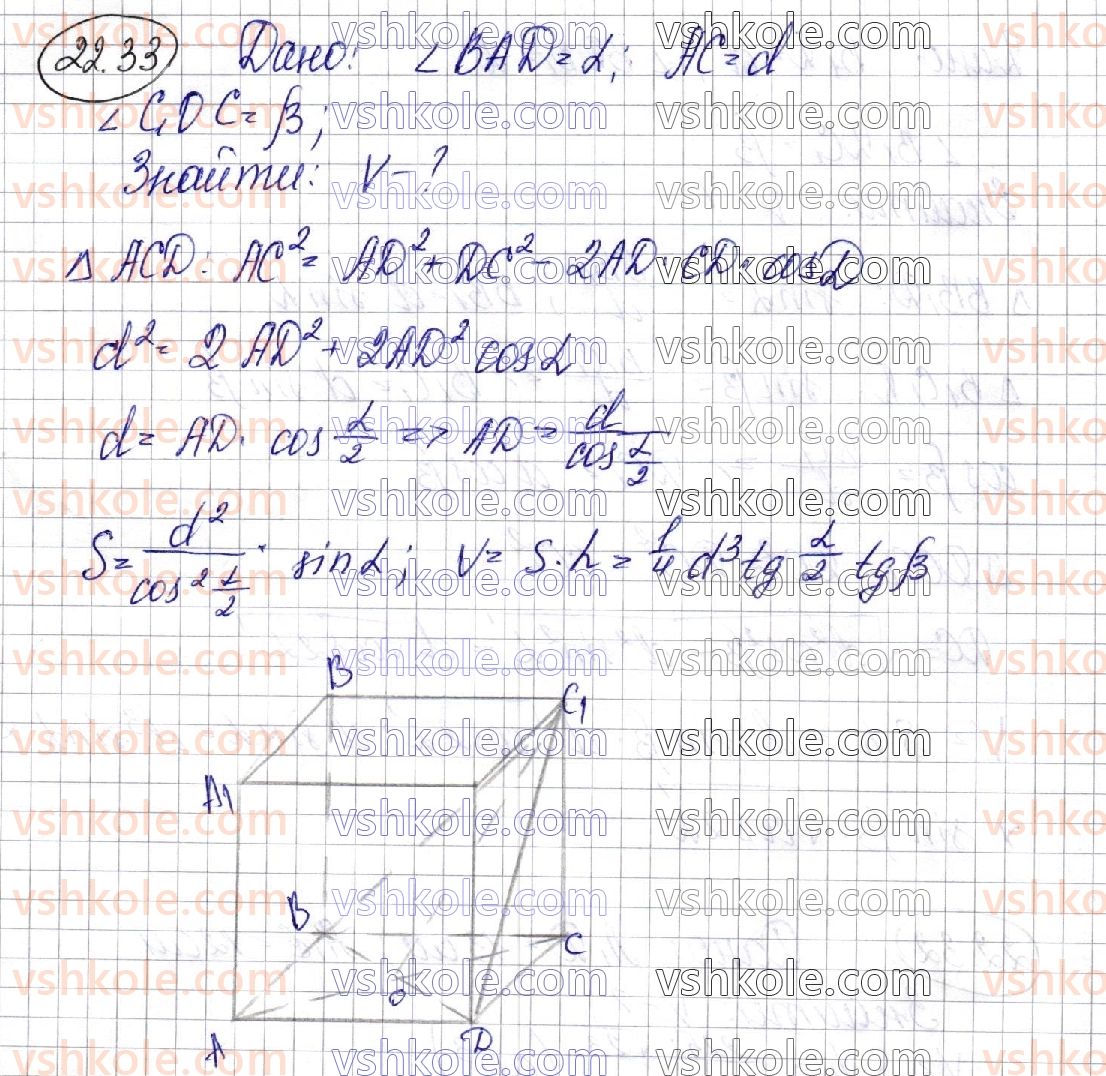 22.33 Дано: ∠BAD=α; AC=d
∠C₁DC=β;
Знайти: V-?
Δ ACD: AC²= AD²+DC²-2AD·CD·cosD
d²= 2AD²+2AD² cosα
d= AD· cos α/2 => AD= d/cos α/2
S= d²/cos² α/2 · sinα; V= S·h = 1/4 d³ tg α/2 tgβ
B
C₁
A₁
B
C
O
A
D
vshkole.com